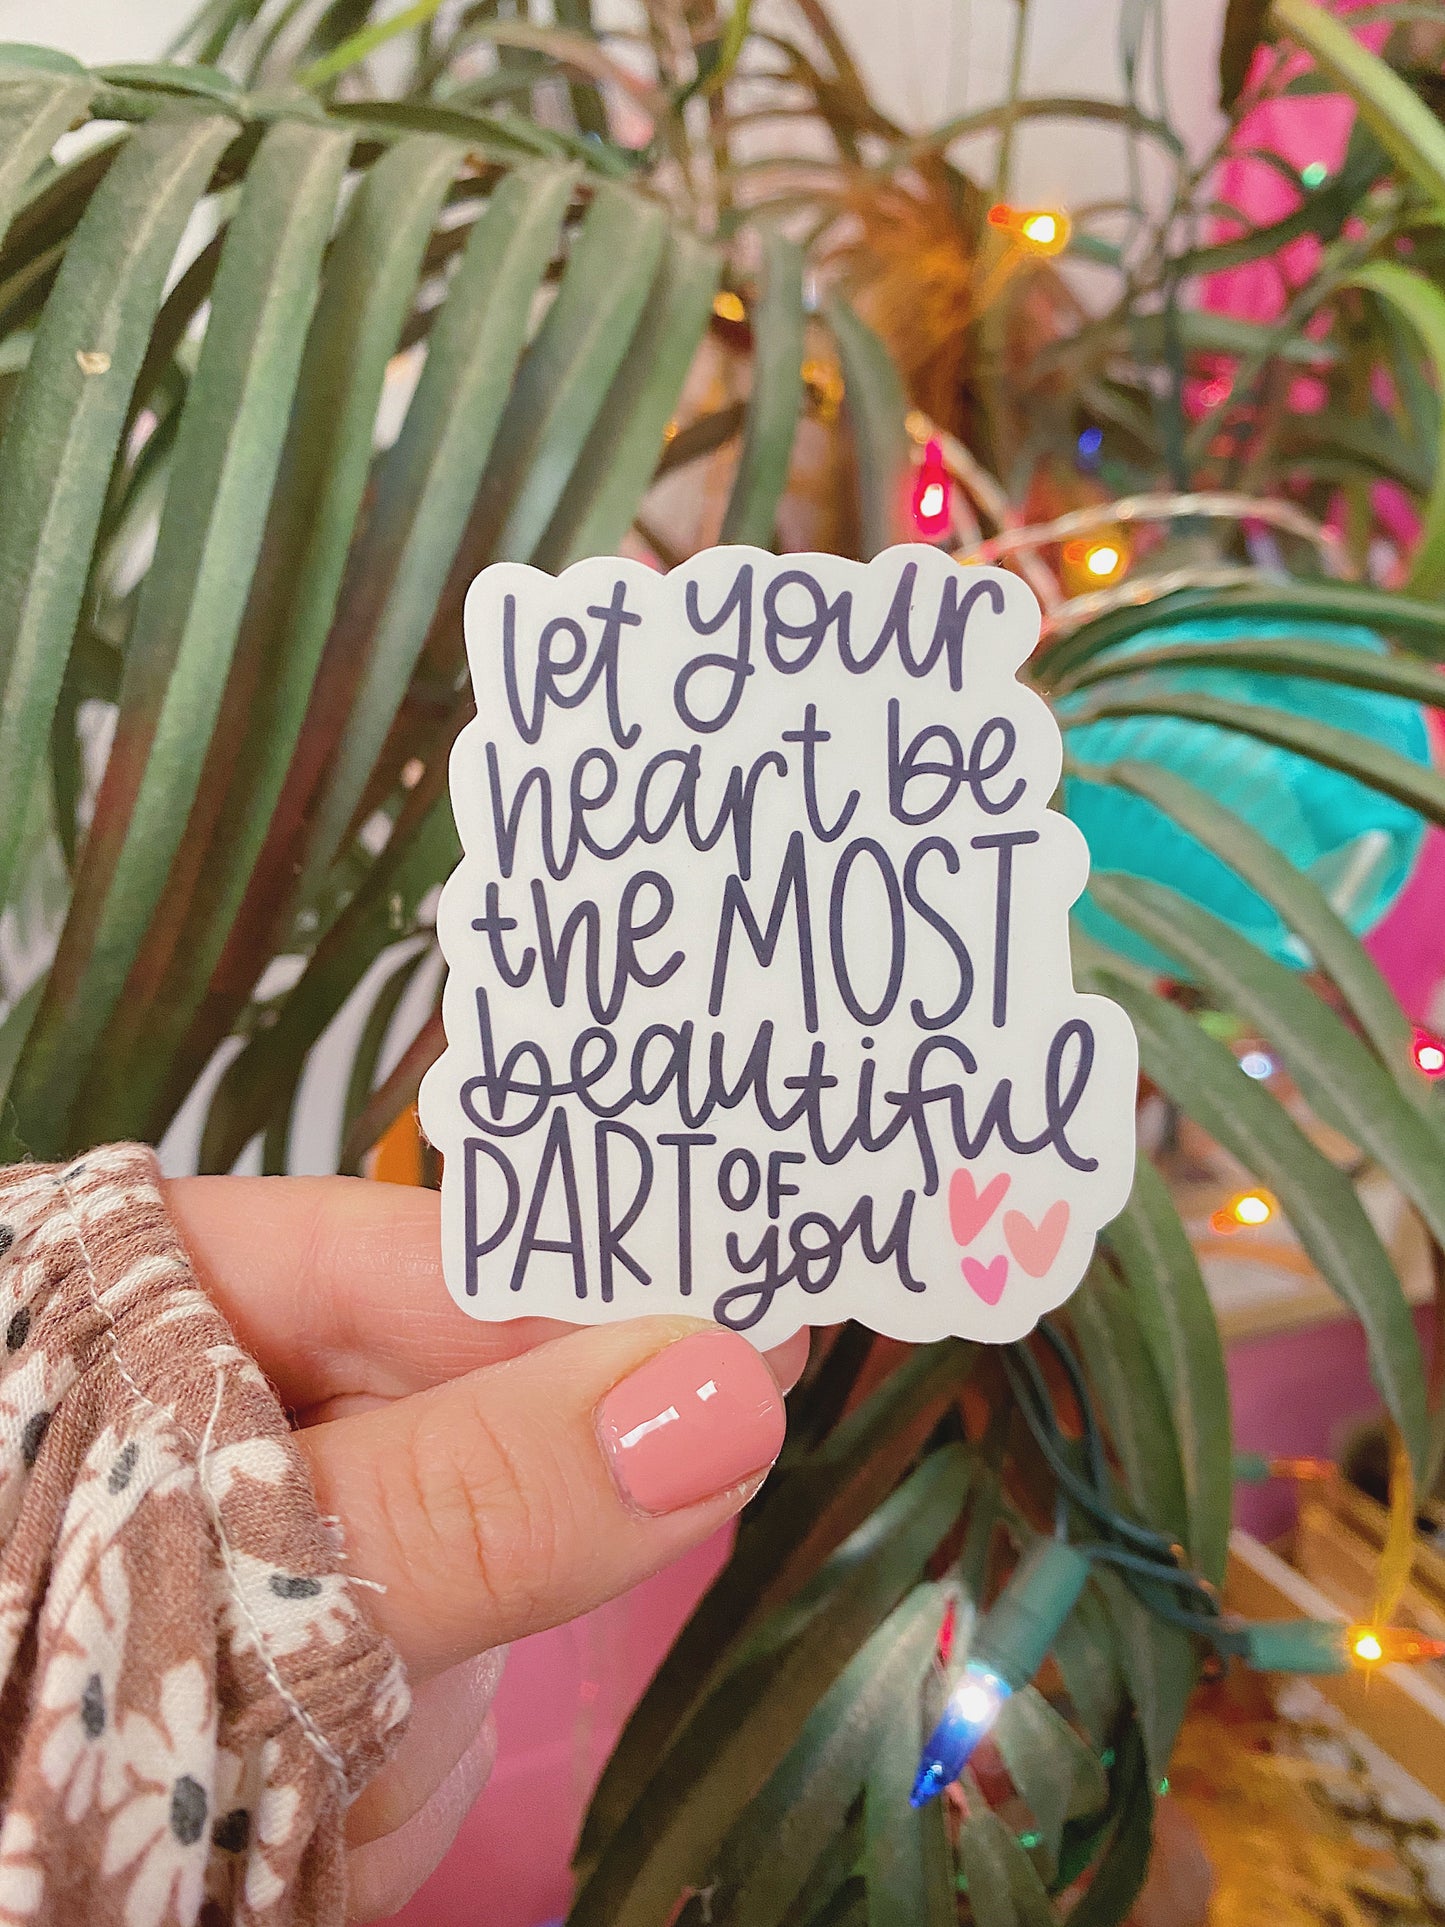 let your
heart be
the MOST
beautiful
PART OF
you